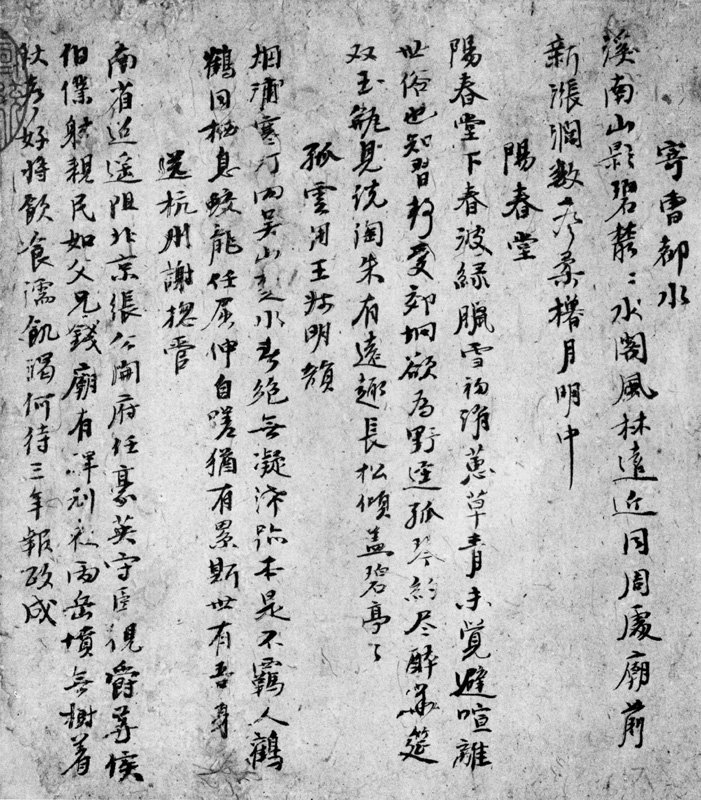 寄曹都水
溪南山影碧叢〻水閣風林遠近同周處廟前
新漲濶數聲柔櫓月明中
陽春堂
陽春堂下春波綠臘雪初消蕙草青未覺避喧離
世俗也知習靜愛郊坰欲為野逕孤琴約盡醉華筵
双玉缾見說陶朱有遠趣長松傾蓋碧亭〻
孤雲用王叔明韻
烟浦寒汀雨吳山楚水春絕無凝滯跡本是不羈人鶴
鶴同栖息蛟龍任屈伸自嗟猶有累斯世有吾身
送杭州謝揔管
南省迢遙阻北京張公開府任豪英守臣視爵等侯
伯僕射親民如父兄錢廟有碑刓衣雨岳墳無樹着
秋聲好將飲食濡飢渴何待三年報政成